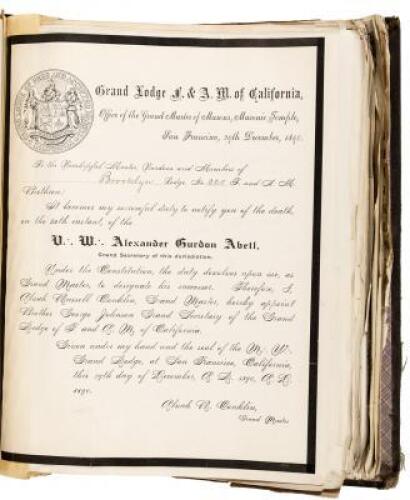 Grand Lodge F. & A. M. of California,
Office of the Grand Master of Masons, Masonic Temple,
San Francisco, 29th December, 1890.
To the Worshipful Master, Wardens and Members of
Brooklyn Lodge No. 225 F. and A. M.
Brethren:
It becomes my sorrowful duty to notify you of the death,
on the 28th instant, of the
V∴ W∴ Alexander Gurdon Abell,
Grand Secretary of this Jurisdiction.
Under the Constitution, the duty devolves upon me, as
Grand Master, to designate his successor. Therefore, I,
Alvah Russell Conklin, Grand Master, hereby appoint
Brother George Johnson Grand Secretary of the Grand
Lodge of F. and A. M. of California.
Given under my hand and the seal of the M∴ W∴
Grand Lodge, at San Francisco, California,
this 29th day of December, A. L. 5890, A. D.
1890.
Alvah R. Conklin,
Grand Master